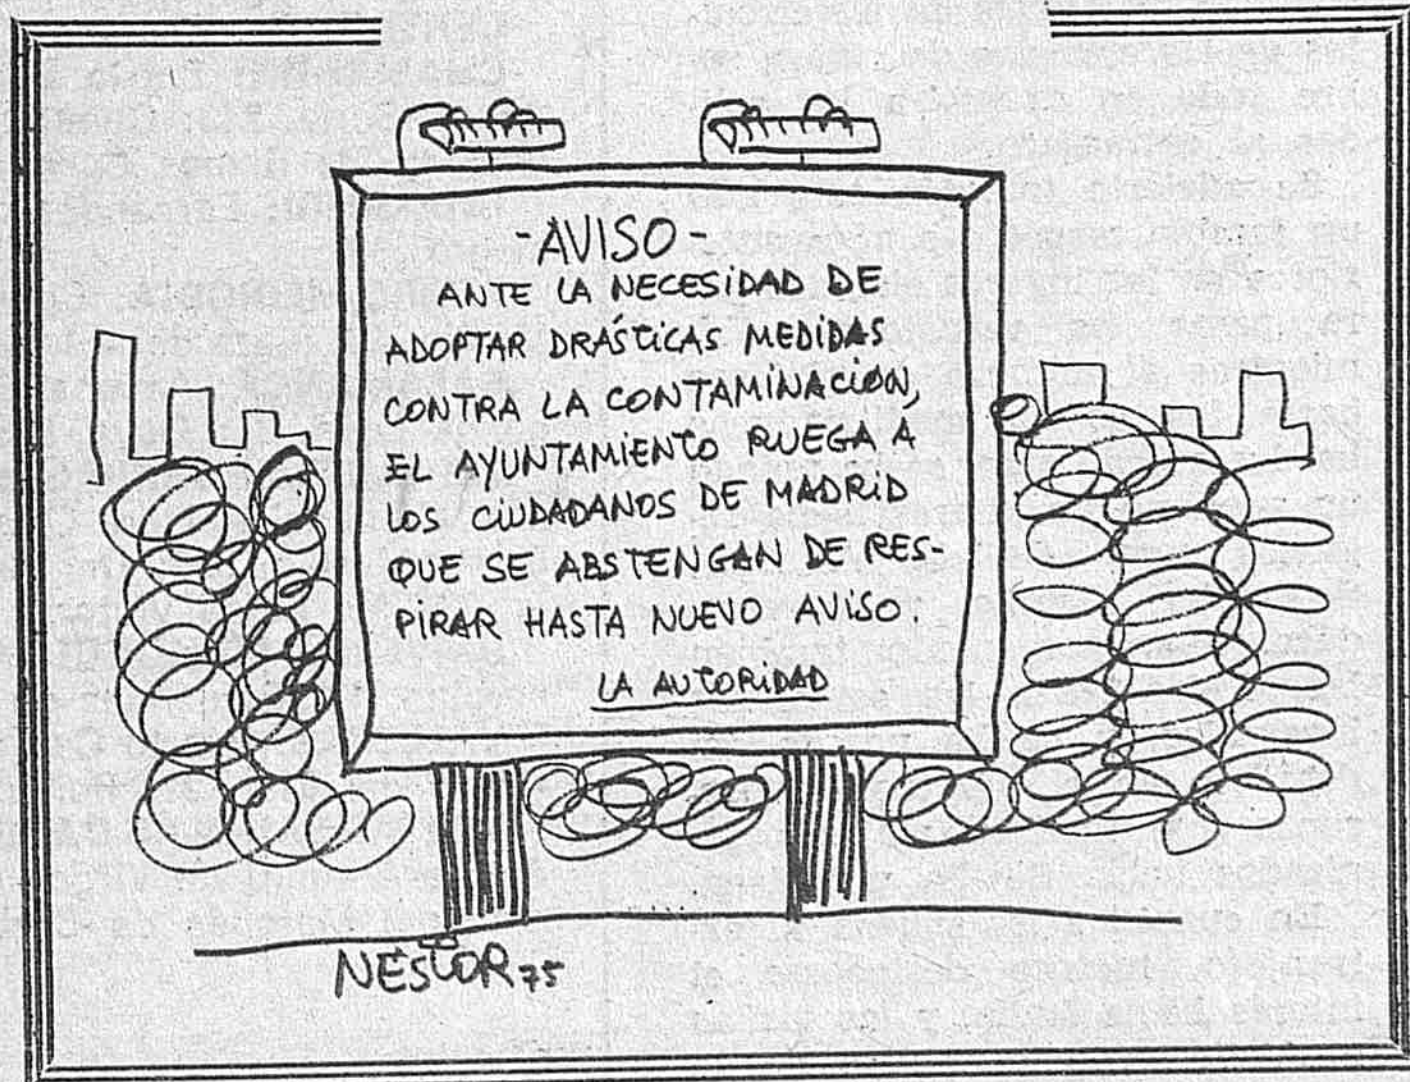 -AVISO-
ANTE LA NECESIDAD DE
ADOPTAR DRÁSTICAS MEDIDAS
CONTRA LA CONTAMINACIÓN,
EL AYUNTAMIENTO RUEGA A
LOS CIUDADANOS DE MADRID
QUE SE ABSTENGAN DE RES-
PIRAR HASTA NUEVO AVISO.
LA AUTORIDAD
NESTOR 75